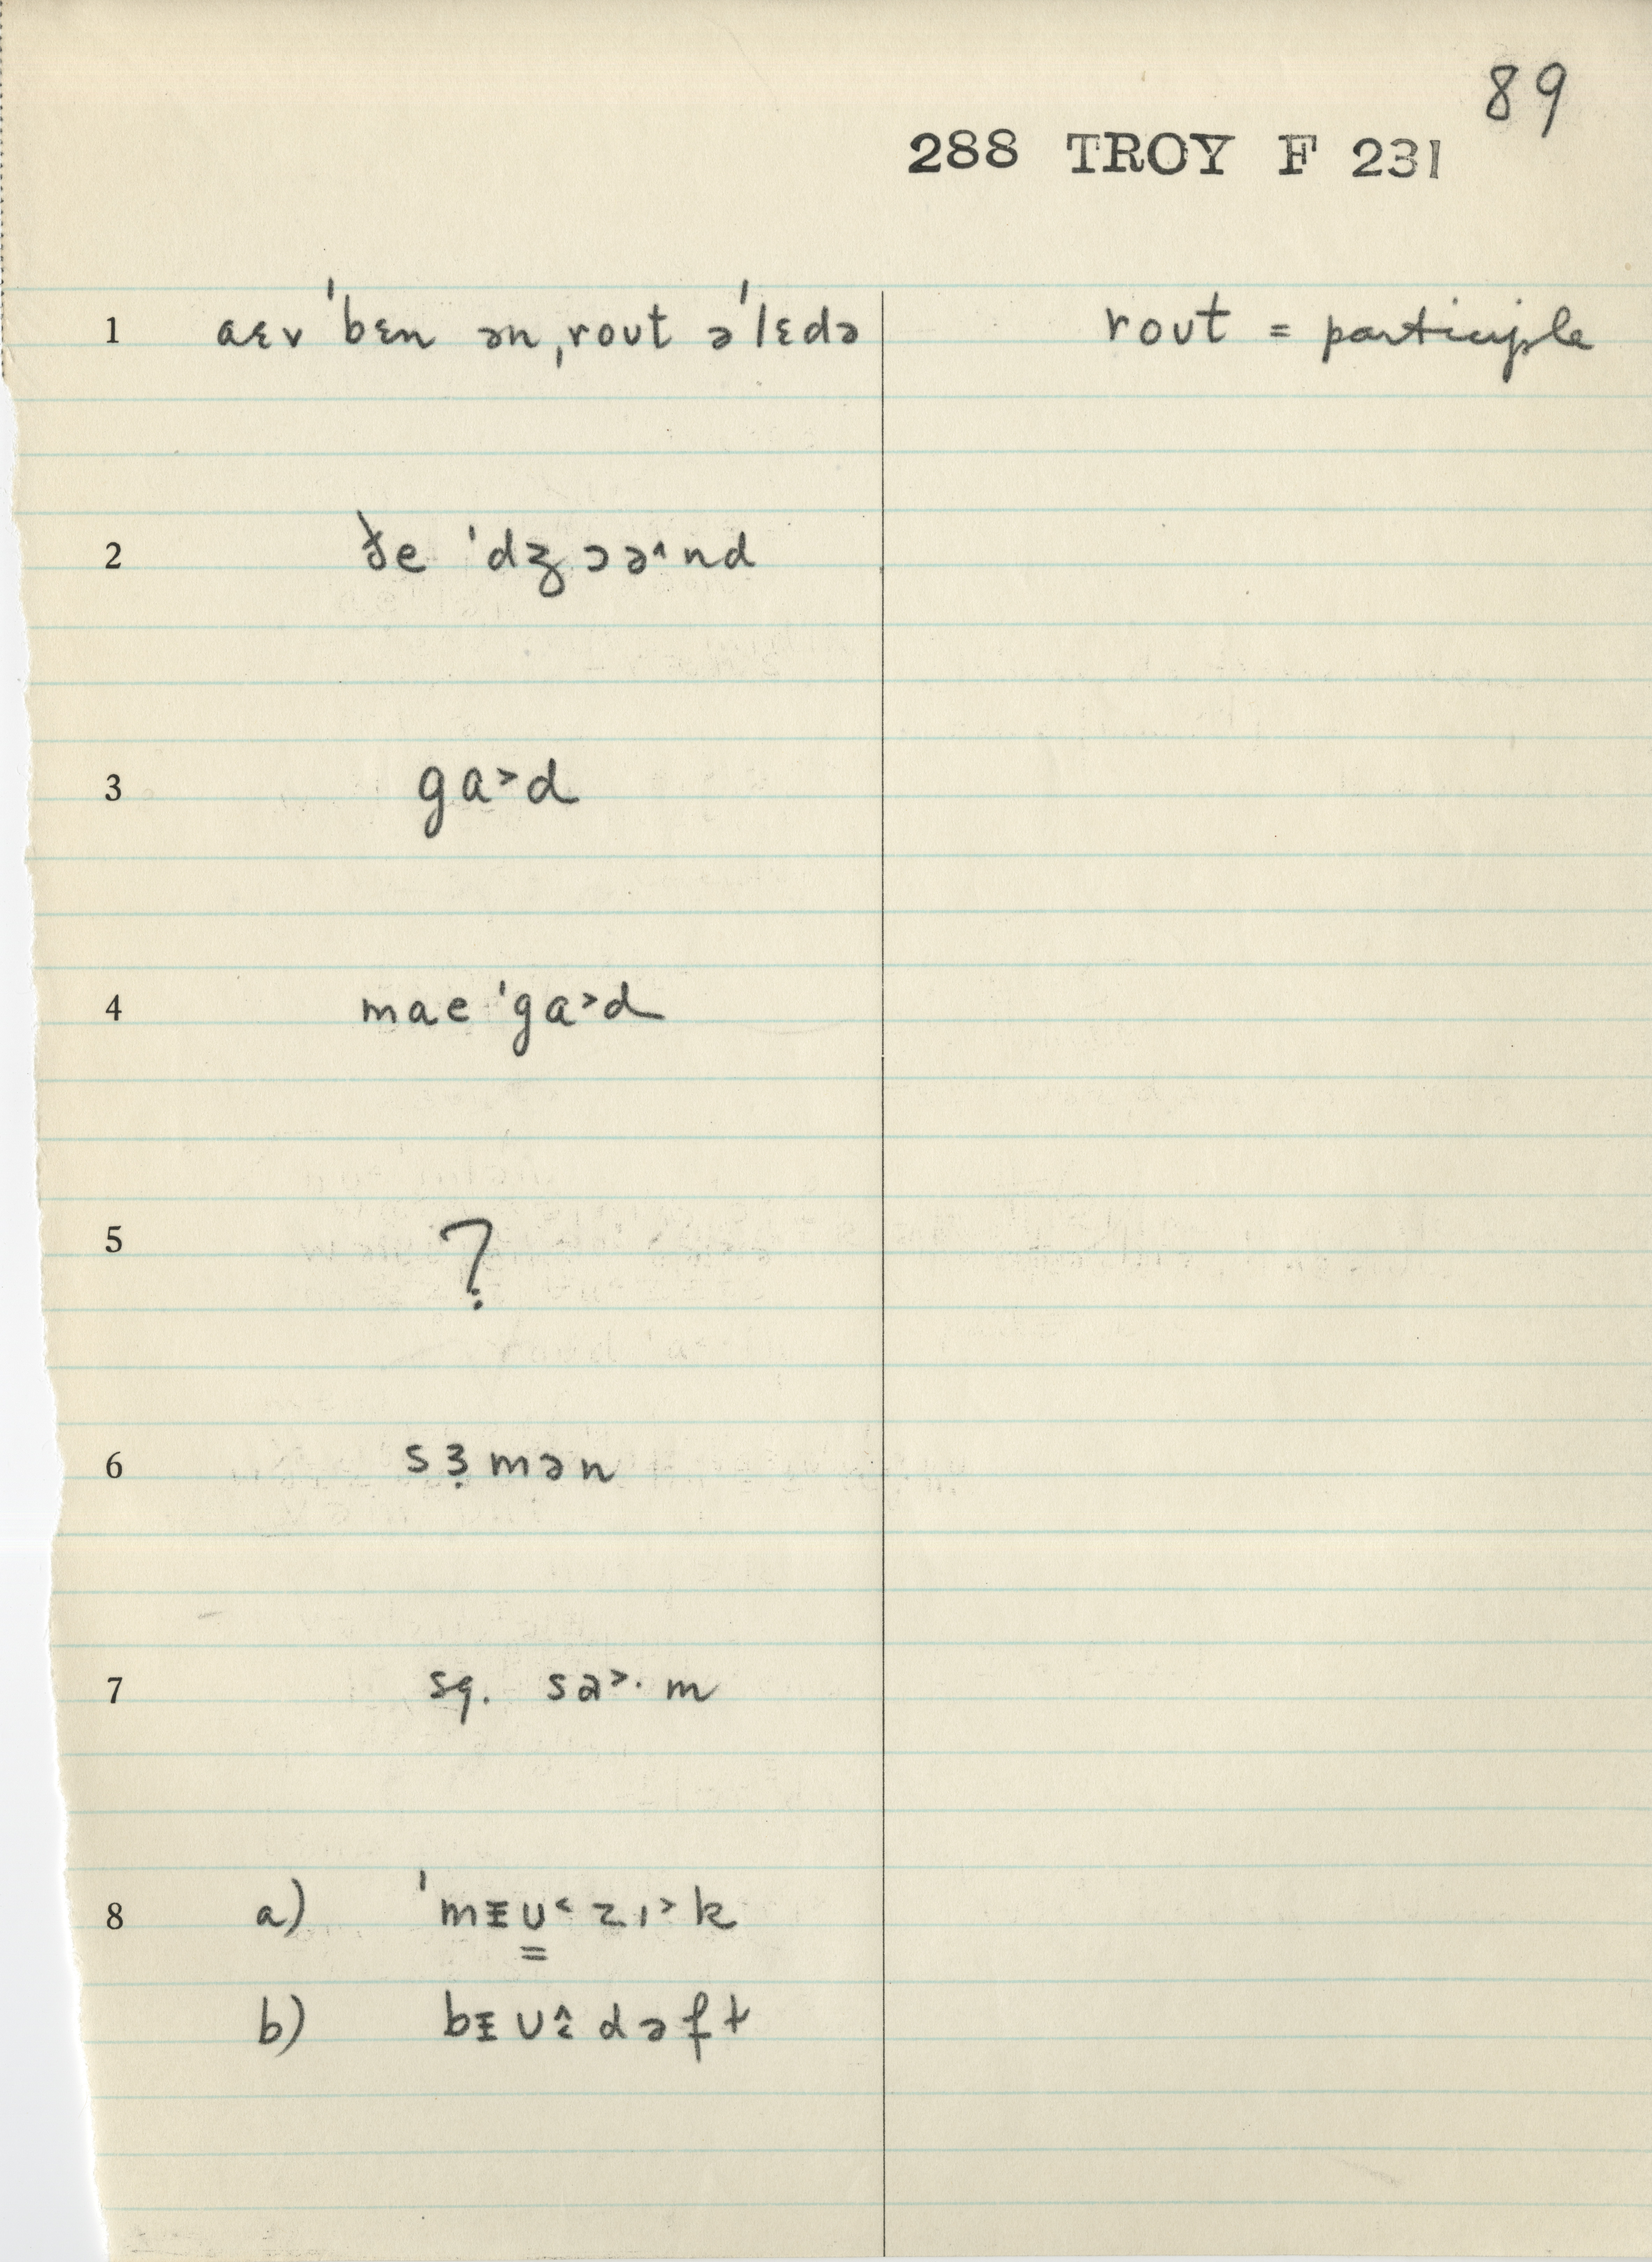 89
288 TROY F 231
1 aɛv ˈbɛn ən ˌrout əˈlɛdə rout = participle
2 ðe ˈdʒɔə^nd
3 ga>d
4 mae ˈga>d
5 ?
6 sɜ̣mən
7 sq. sa>· m
8 a) ˈmɪ̵ʊ̳< zɪ>k
b) bɪ̵ʊ dəft